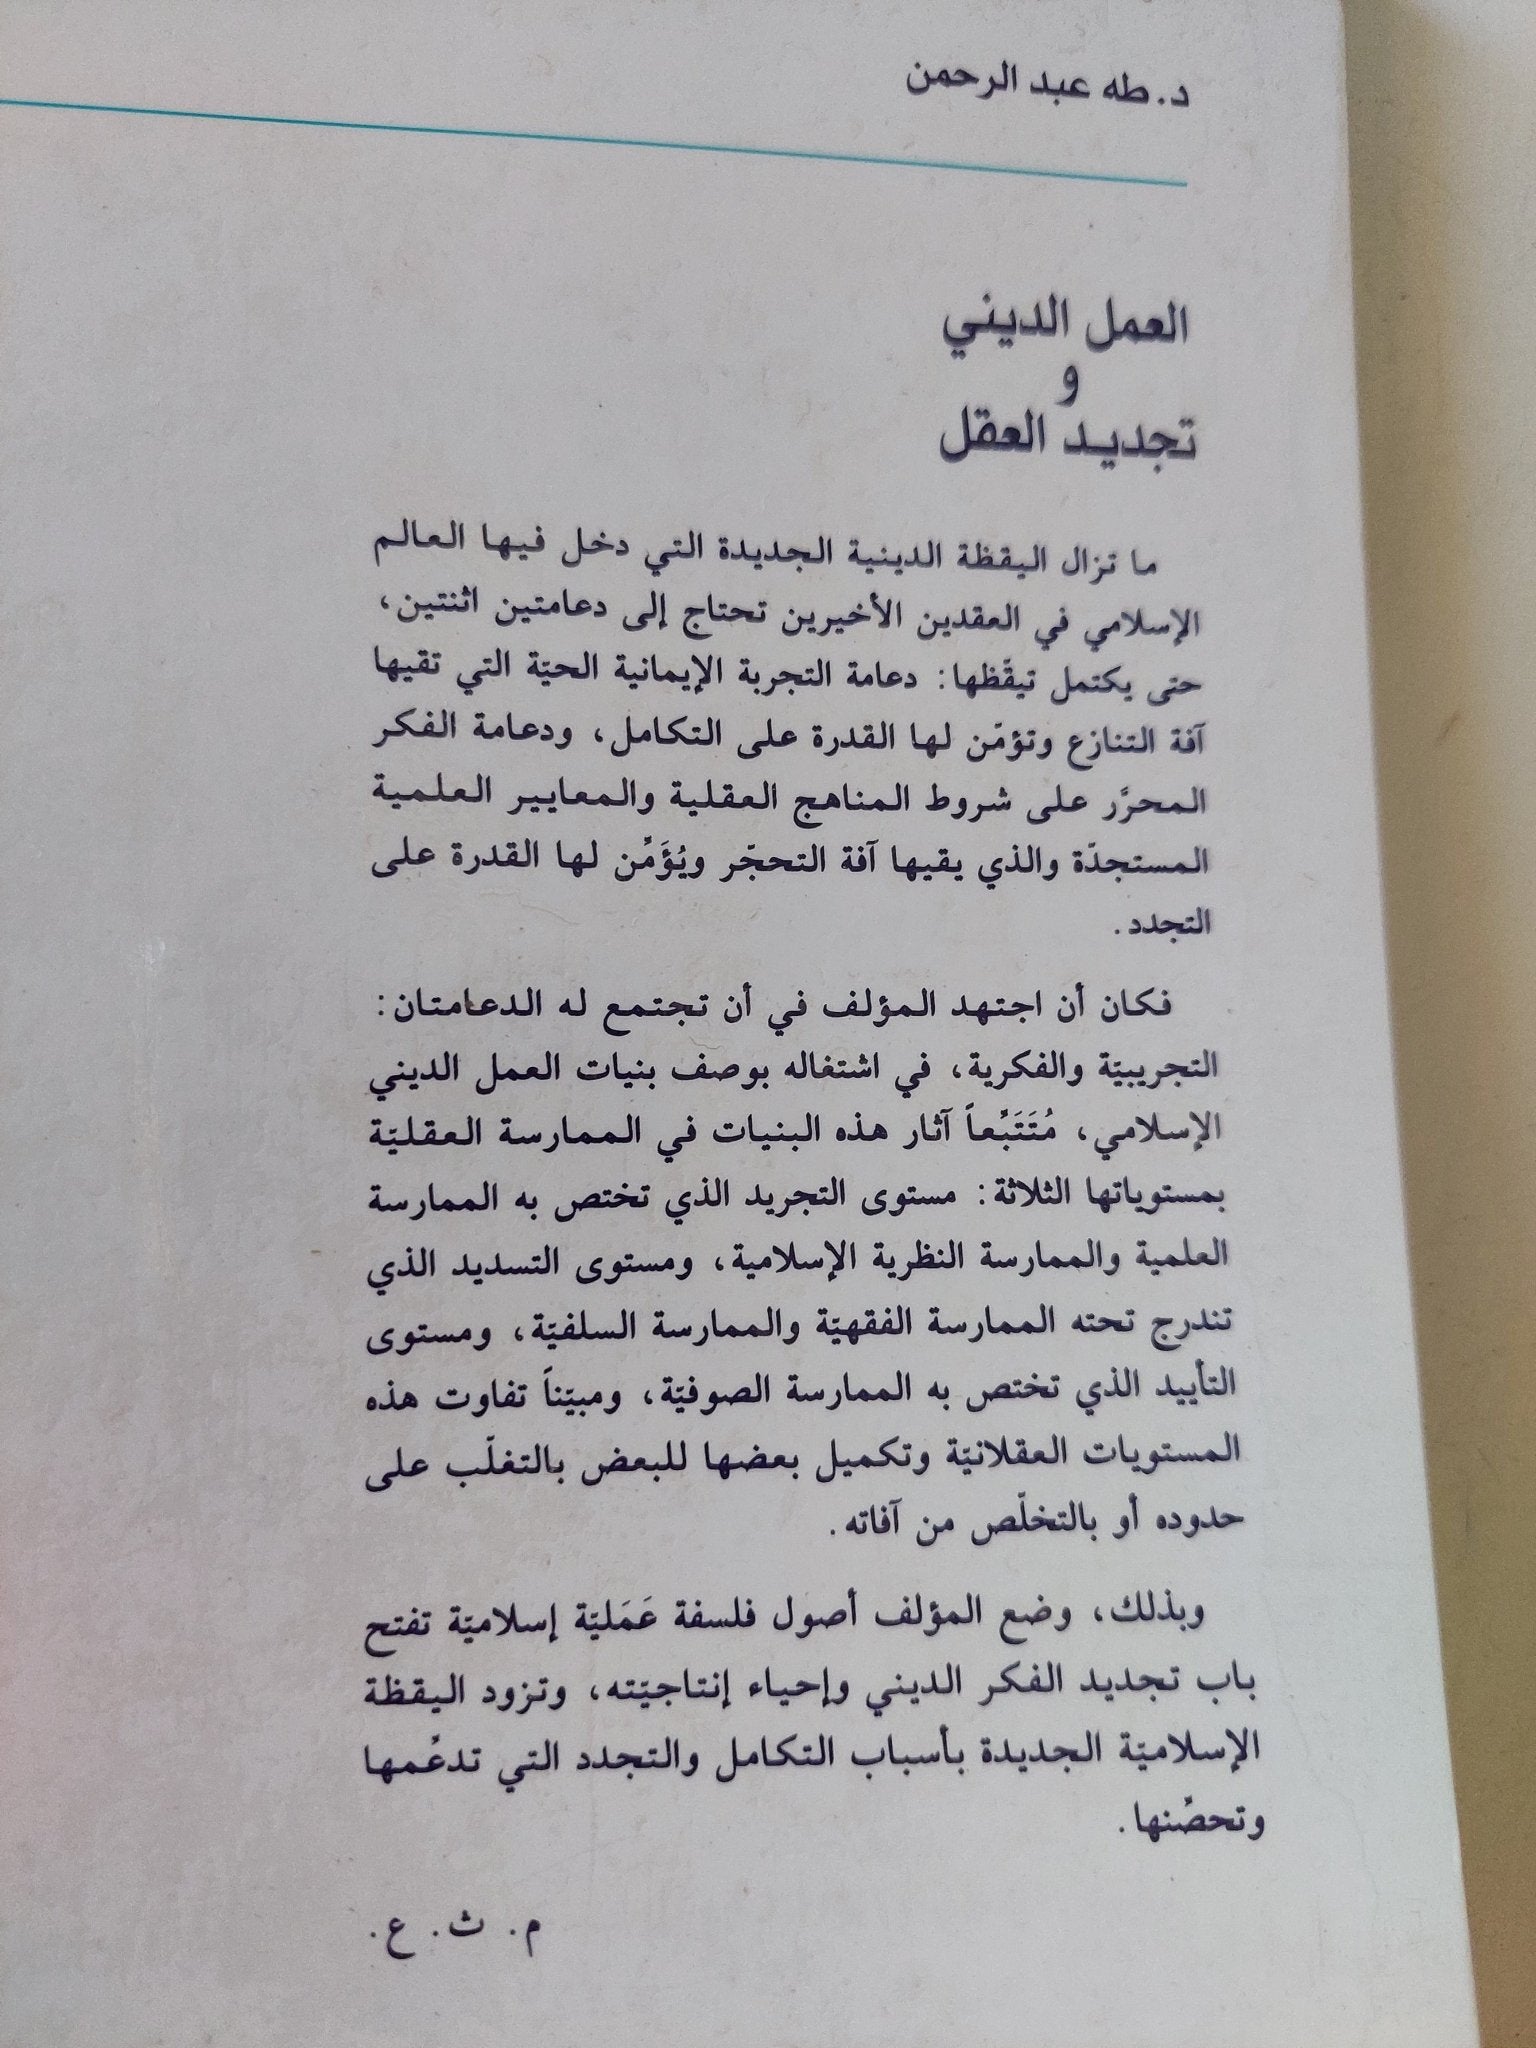 د. طه عبد الرحمن
العمل الديني
و
تجديد العقل
ما تزال اليقظة الدينية الجديدة التي دخل فيها العالم
الإسلامي في العقدين الأخيرين تحتاج إلى دعامتين اثنتين،
حتى يكتمل تيقّظها: دعامة التجربة الإيمانية الحيّة التي تقيها
آفة التنازع وتؤمّن لها القدرة على التكامل، ودعامة الفكر
المحرَّر على شروط المناهج العقلية والمعايير العلمية
المستجدّة والذي يقيها آفة التحجّر ويُؤَمِّن لها القدرة على
التجدد.
فكان أن اجتهد المؤلف في أن تجتمع له الدعامتان:
التجريبيّة والفكرية، في اشتغاله بوصف بنيات العمل الديني
الإسلامي، مُتَتَبِّعاً آثار هذه البنيات في الممارسة العقليّة
بمستوياتها الثلاثة: مستوى التجريد الذي تختص به الممارسة
العلمية والممارسة النظرية الإسلامية، ومستوى التسديد الذي
تندرج تحته الممارسة الفقهيّة والممارسة السلفيّة، ومستوى
التأييد الذي تختص به الممارسة الصوفيّة، ومبيّناً تفاوت هذه
المستويات العقلانيّة وتكميل بعضها للبعض بالتغلّب على
حدوده أو بالتخلّص من آفاته.
وبذلك، وضع المؤلف أصول فلسفة عَمَليّة إسلاميّة تفتح
باب تجديد الفكر الديني وإحياء إنتاجيّته، وتزود اليقظة
الإسلاميّة الجديدة بأسباب التكامل والتجدد التي تدعّمها
وتحصِّنها.
م. ث. ع.